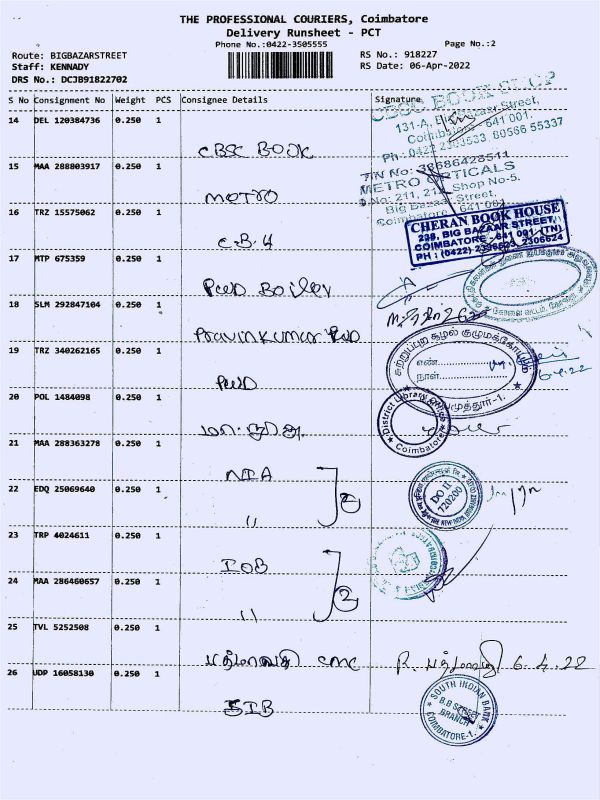 THE PROFESSIONAL COURIERS, Coimbatore
Delivery Runsheet - PCT
Phone No.:0422-3505555
Page No.:2
Route: BIGBAZARSTREET
Staff: KENNADY
DRS No.: DCJB91822702
RS No.: 918227
RS Date: 06-Apr-2022
S No Consignment No Weight PCS Consignee Details Signature
14 DEL 120384736 0.250 1
CBSC BOOK
CBSC BOOK SHOP
131-A, Big Bazaar Street,
Coimbatore - 641 001.
Ph : 0422 2303533, 80566 55337
15 MAA 288803917 0.250 1
METRO
METRO OPTICALS
Shop No-5,
Big Bazaar Street,
Coimbatore - 641 001
16 TRZ 15575062 0.250 1
C.B.H
CHERAN BOOK HOUSE
238, BIG BAZAAR STREET,
COIMBATORE - 641 001 (TN)
PH : (0422) 2396623, 2306624
17 MTP 675359 0.250 1
PWD Boiler
18 SLM 292847104 0.250 1
Pravinkumar PWD
19 TRZ 340262165 0.250 1
PWD
சுற்றுப்புற சூழல் குழுமக்கோட்டம்
எண்
நாள்
20 POL 1484098 0.250 1
District Library Office
Coimbatore
21 MAA 288363278 0.250 1
NIA
22 EDQ 25069640 0.250 1
"
2
DO II
720200
23 TRP 4024611 0.250 1
IOB
24 MAA 286460657 0.250 1
"
2
25 TVL 5252508 0.250 1
பத்மாவதி CMC
R. பத்மாவதி 6.4.22
26 UDP 16058130 0.250 1
SIB
SOUTH INDIAN BANK
B.B STREET
BRANCH
COIMBATORE-1.